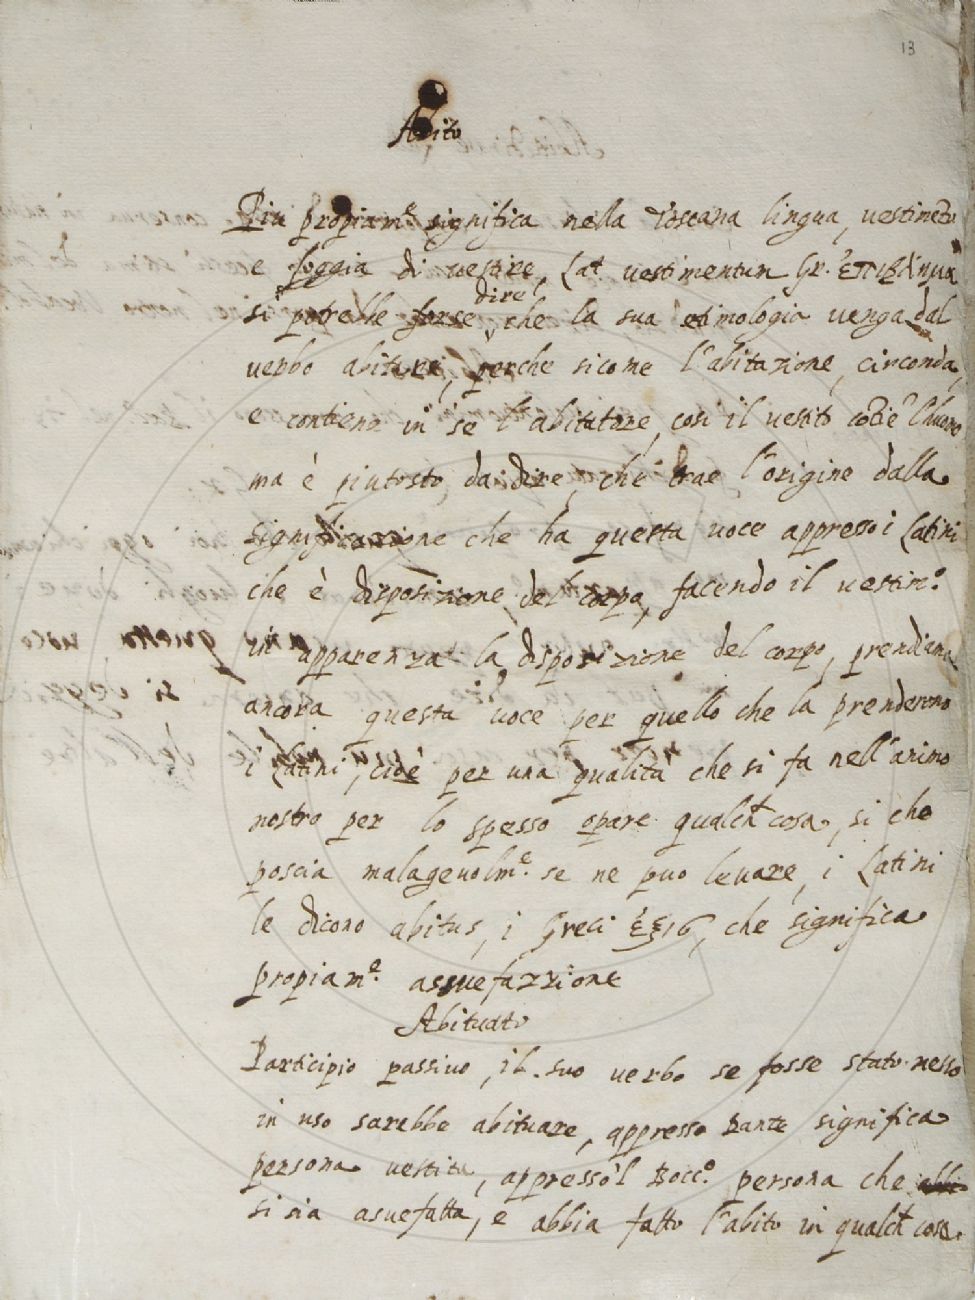 13
Abito
Piu propiam.e significa nella Toscana lingua, vestimēto
e foggia di vestire, Lat. vestimentum Gr. ἐπιβλημα
dire,
si potrebbe forse che la sua etimologia venga dal
verbo abitare, perche sicome l'abitazione, circonda,
e contiene in se l'abitatore, cosi il vestito l'huomo
ma è piutosto, da dire, che trae l'origine dalla
significazione che ha questa voce appresso i Latini
che è disposizione del corpo, facendo il vestim.o
in apparenza la disposizione del corpo, prendiamo
ancora questa voce per quello che la prenderono
i Latini, cioè per una qualità che si fa nell'animo
nostro per lo spesso opare qualch cosa, si che
poscia malagevolm.e se ne puo levare, i Latini
le dicono abitus, i Greci ἑξις, che significa
propiam.e assuefazzione
Abituato
Participio passivo, il suo verbo se fosse stato messo
in uso sarebbe abituare, appresso Dante significa
persona vestita, appresso'l Bocc.o persona che
si sia asuefatta, e abbia fatto l'abito in qualch cosa.